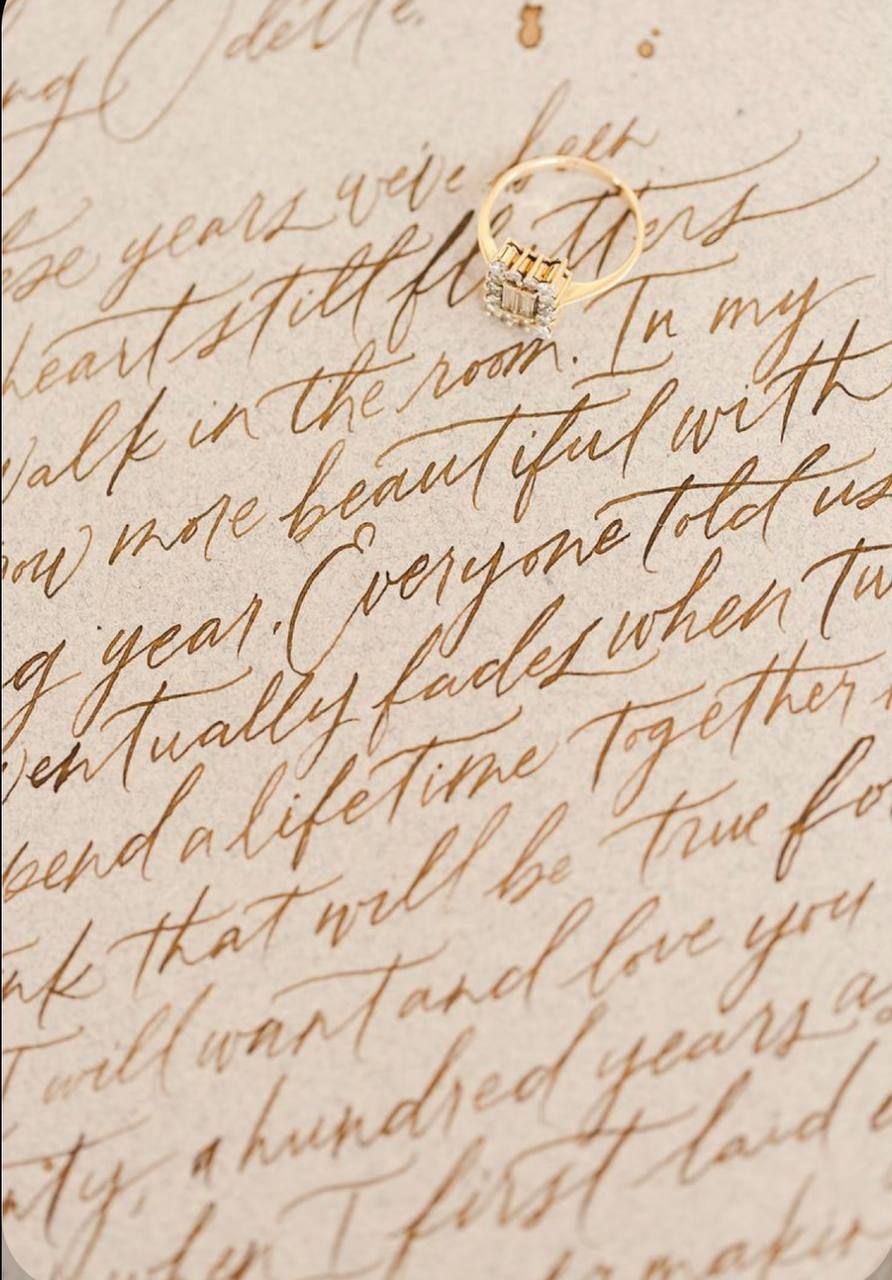 ng Odette.
ese years we've been
heart still flutters
walk in the room. In my
ow more beautiful with
g year. Everyone told us
ventually fades when tw
pend a lifetime together
nk that will be true fo
I will want and love you
nty, a hundred years a
when I first laid e